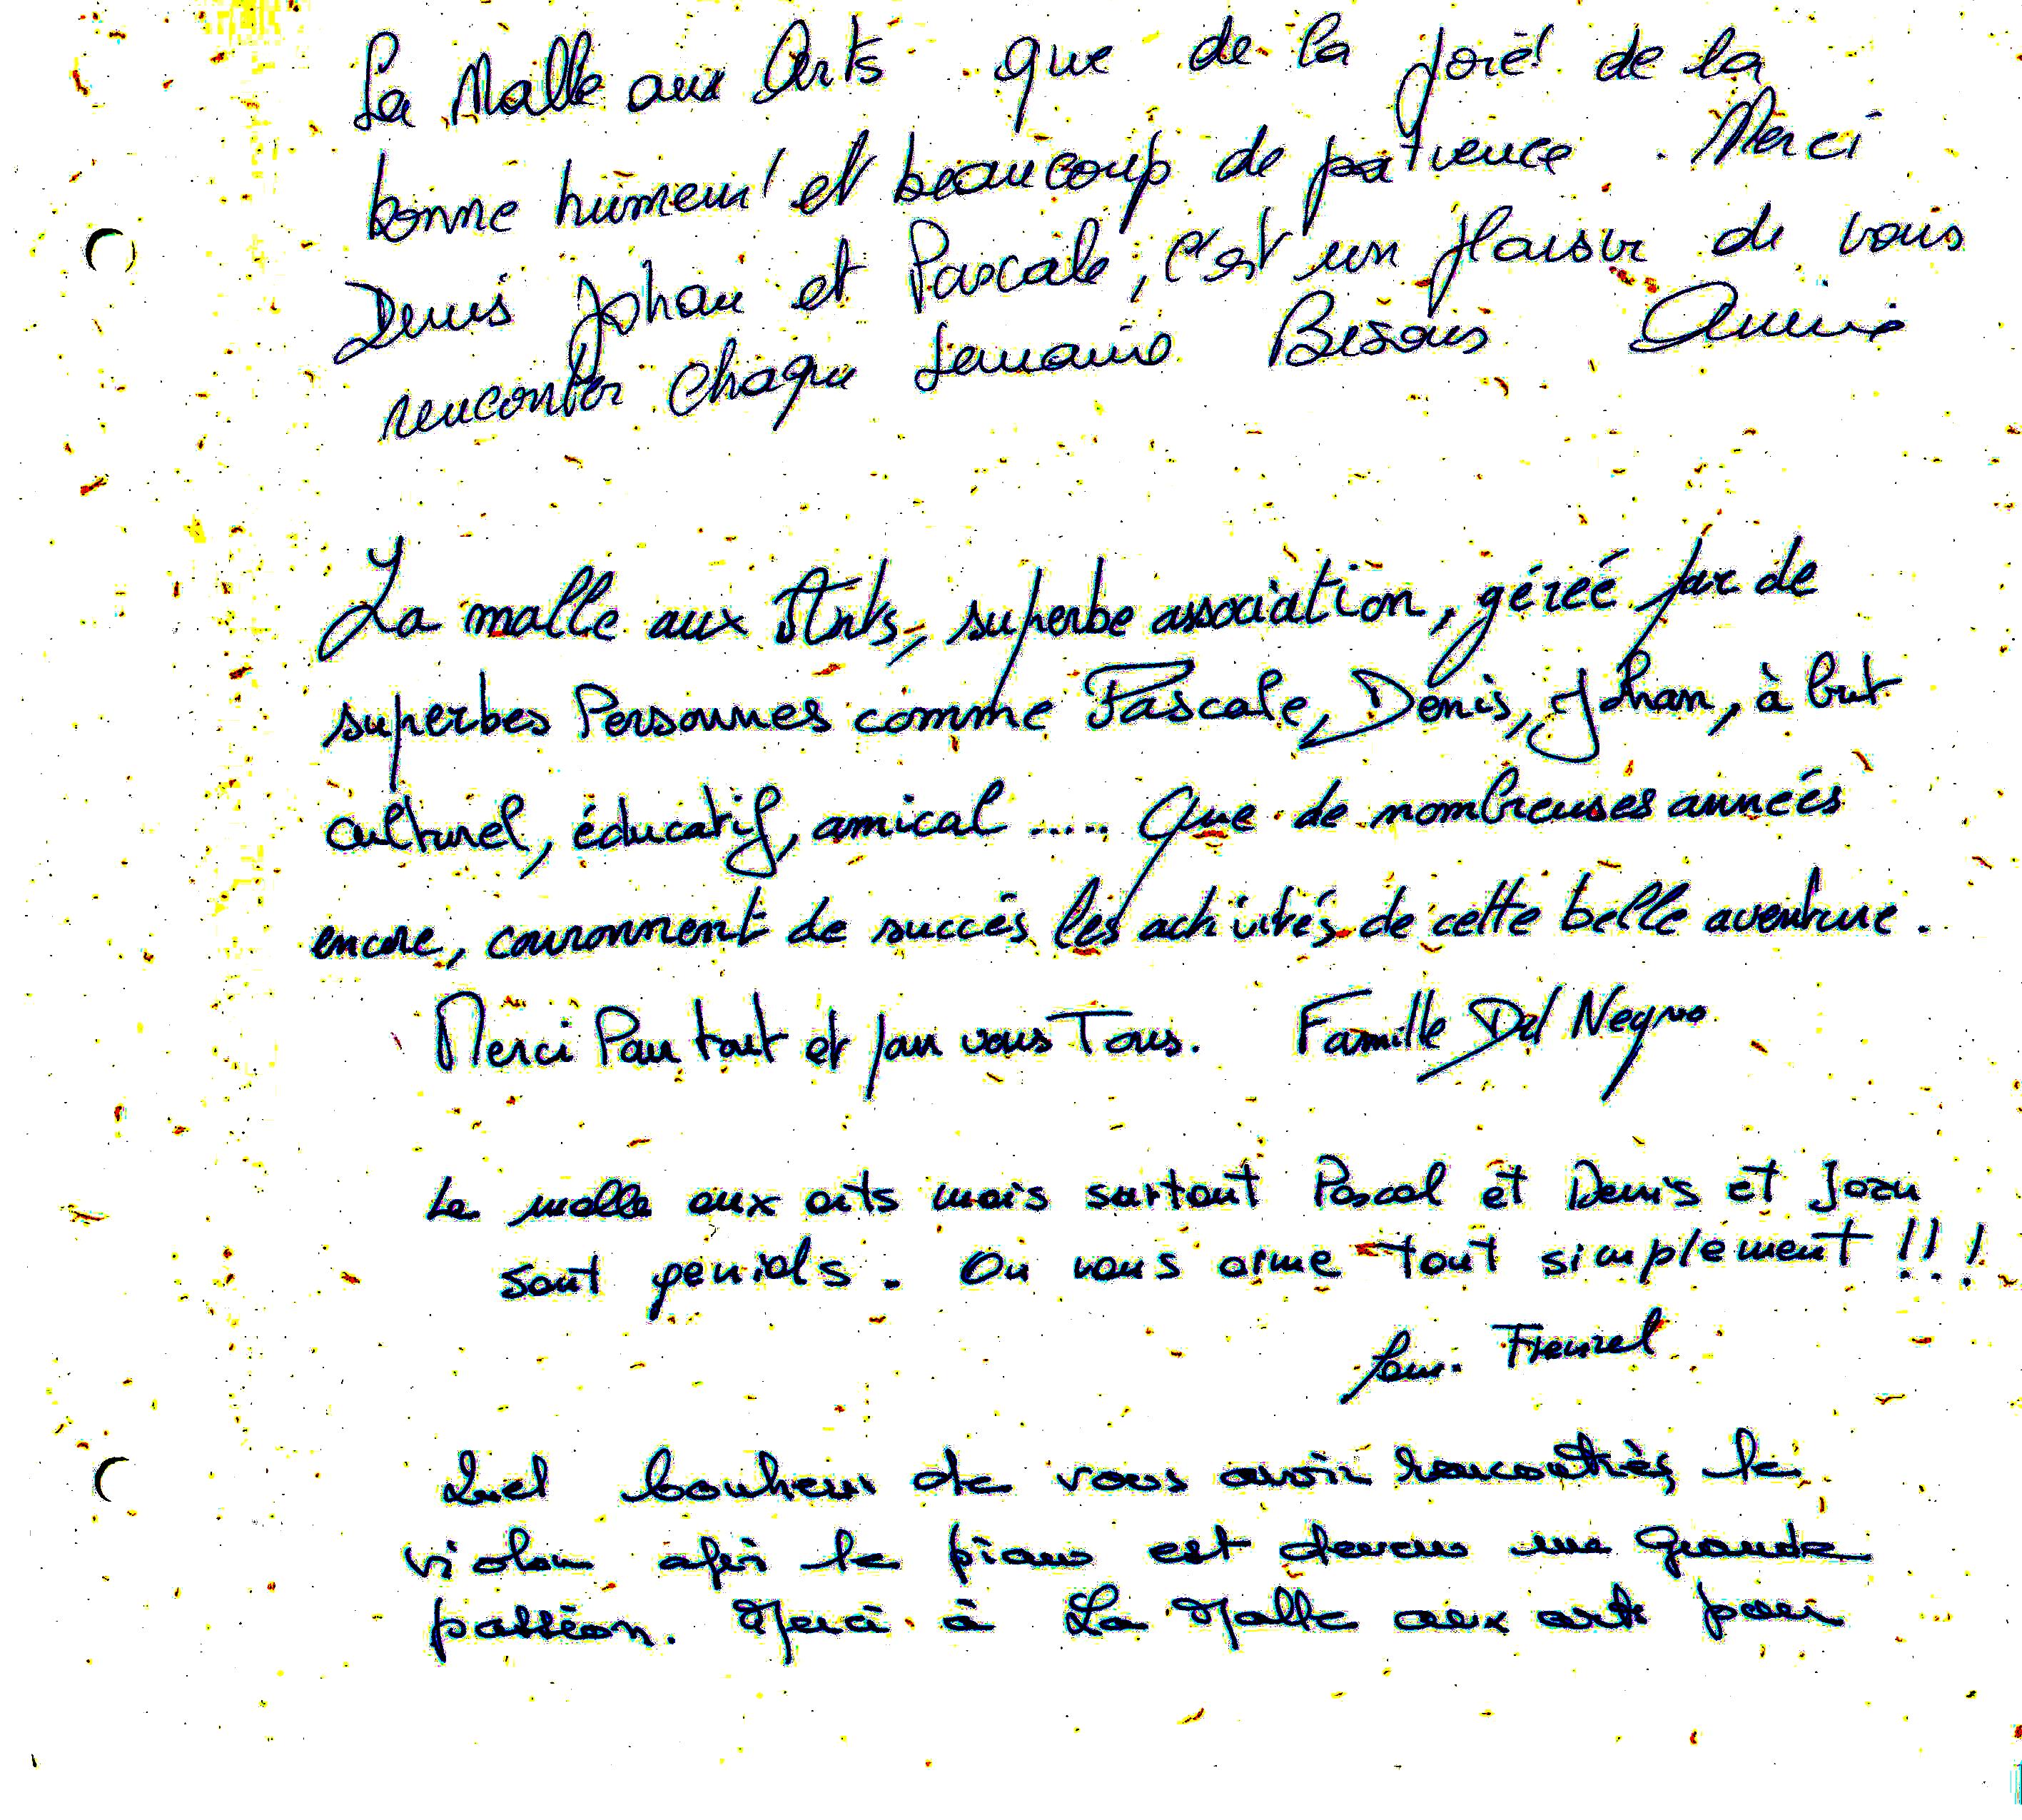 La Malle aux Arts que de la joie! de la
bonne humeur! et beaucoup de patience. Merci
Denis Johan et Pascale, c'est un plaisir de vous
rencontrer chaque semaine Bisous Annie
La malle aux Arts, superbe association, gérée par de
superbes Personnes comme Pascale, Denis, Johan, à but
culturel, éducatif, amical ..... Que de nombreuses années
encore, couronnent de succès les activités de cette belle aventure.
Merci Pour tout et pour vous Tous. Famille Del Negro
La malle aux arts mais surtout Pascal et Denis et Joan
sont genials. On vous aime tout simplement !!!
Fam. Frenzel
Quel bonheur de vous avoir rencontrés le
violon après le piano est devenu une grande
passion. Merci à La Malle aux arts pour